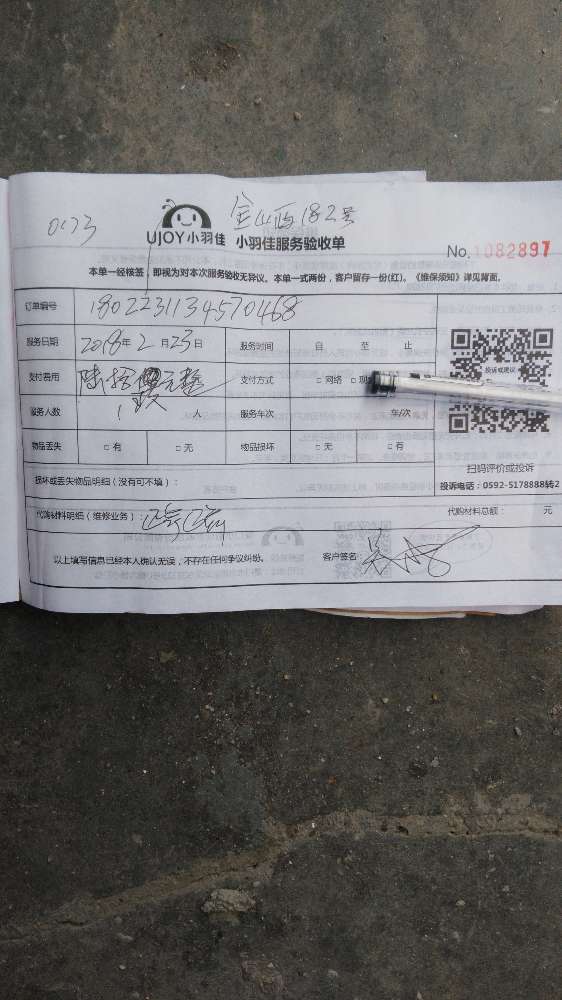 0173 金山西182号
UJOY小羽佳 小羽佳服务验收单
No. 1082897
本单一经核签,即视为对本次服务验收无异议。本单一式两份,客户留存一份(红)。《维保须知》详见背面。
订单编号 1802231134570468
服务日期 2018年 2 月 23 日 服务时间 自 至 止
支付费用 陆拾 元整 支付方式 □ 网络 □ 现
投诉或建议
服务人数 1 人 服务车次 车/次
物品丢失 □ 有 □ 无 物品损坏 □ 无 □ 有
扫码评价或投诉
损坏或丢失物品明细(没有可不填):
投诉电话:0592-5178888转2
代购材料明细(维修业务): 代购材料总额: 元
以上填写信息已经本人确认无误,不存在任何争议纠纷。 客户签名: